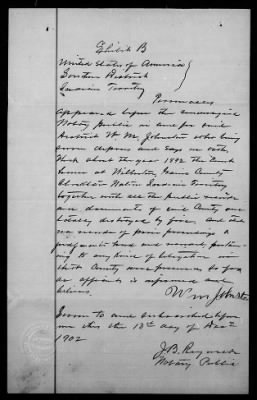 Exhibit B
United States of America
Southern District
Indian Territory
Personally
appeared before the undersigned
Notary public in and for said
district Wm Johnston who being
sworn deposes and says on oath
that about the year 1892 the Court
house at Wilburton, Gaines County
Choctaw Nation Indian Territory
together with all the public records
and documents of said County were
totally destroyed by fire. And that
no record of prior proceedings
and records pertaining
to any kind of litigation in
that County were preserved so far
as affiant is informed and
believes.
Wm Johnston
Sworn to and subscribed before
me this the 13th day of Decr
1902
J.B. Reynolds
Notary Public